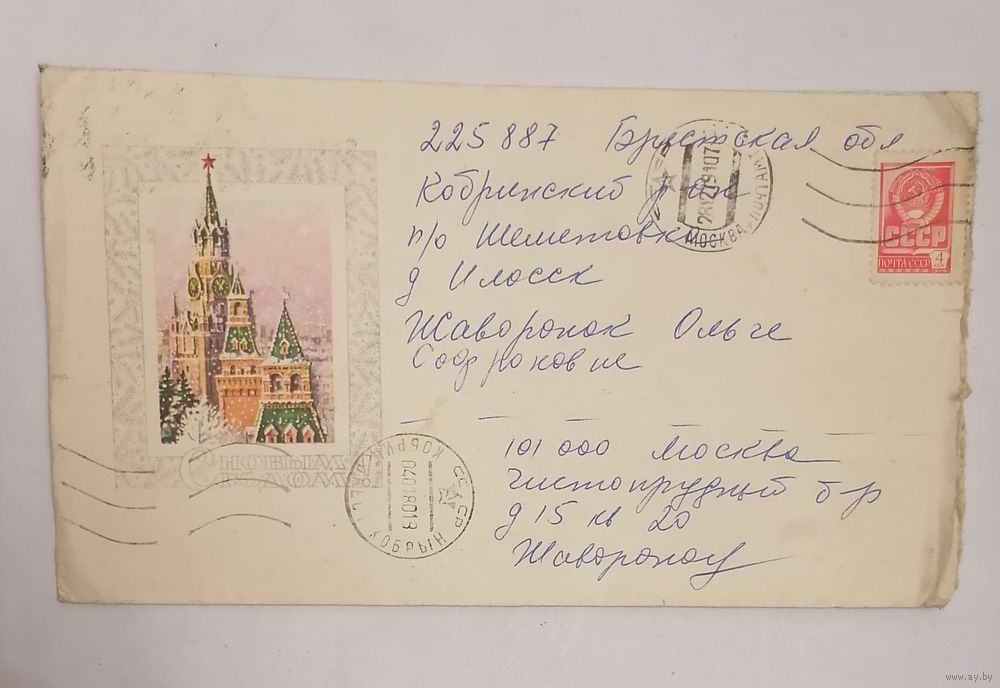 225887 Брестская обл
Кобринский р-он
п/о Шеметовка
д Илосск
Жаворонок Ольге
Софроновне
101000 Москва
Чистопрудный б-р
д 15 кв 20
С НОВЫМ
ГОДОМ!
СССР
ПОЧТА СССР 4
МОСКВА
ПОЧТАМТ
КОБРИН
КОБРЫН
СССР
www.ay.by